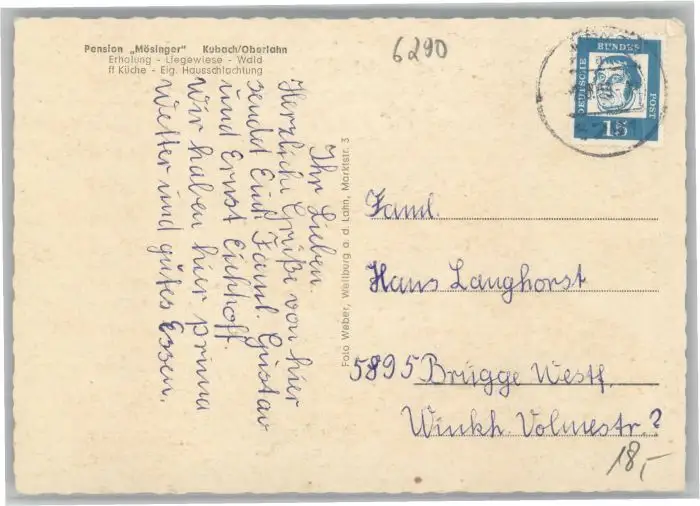 Pension „Mösinger" Kubach/Oberlahn
Erholung - Liegewiese - Wald
ff Küche - Eig. Hausschlachtung
6290
DEUTSCHE
BUNDES
POST
15
Ihr Lieben.
Herzliche Grüße von hier
sendet Euch Faml. Gustav
und Ernst Eickhoff.
Wir haben hier prima
Wetter und gutes Essen.
Foto Weber, Weilburg a. d. Lahn, Marktstr. 3
Faml.
Hans Langhorst
5895 Brügge Westf.
Winkh. Volmestr. ?
18,-